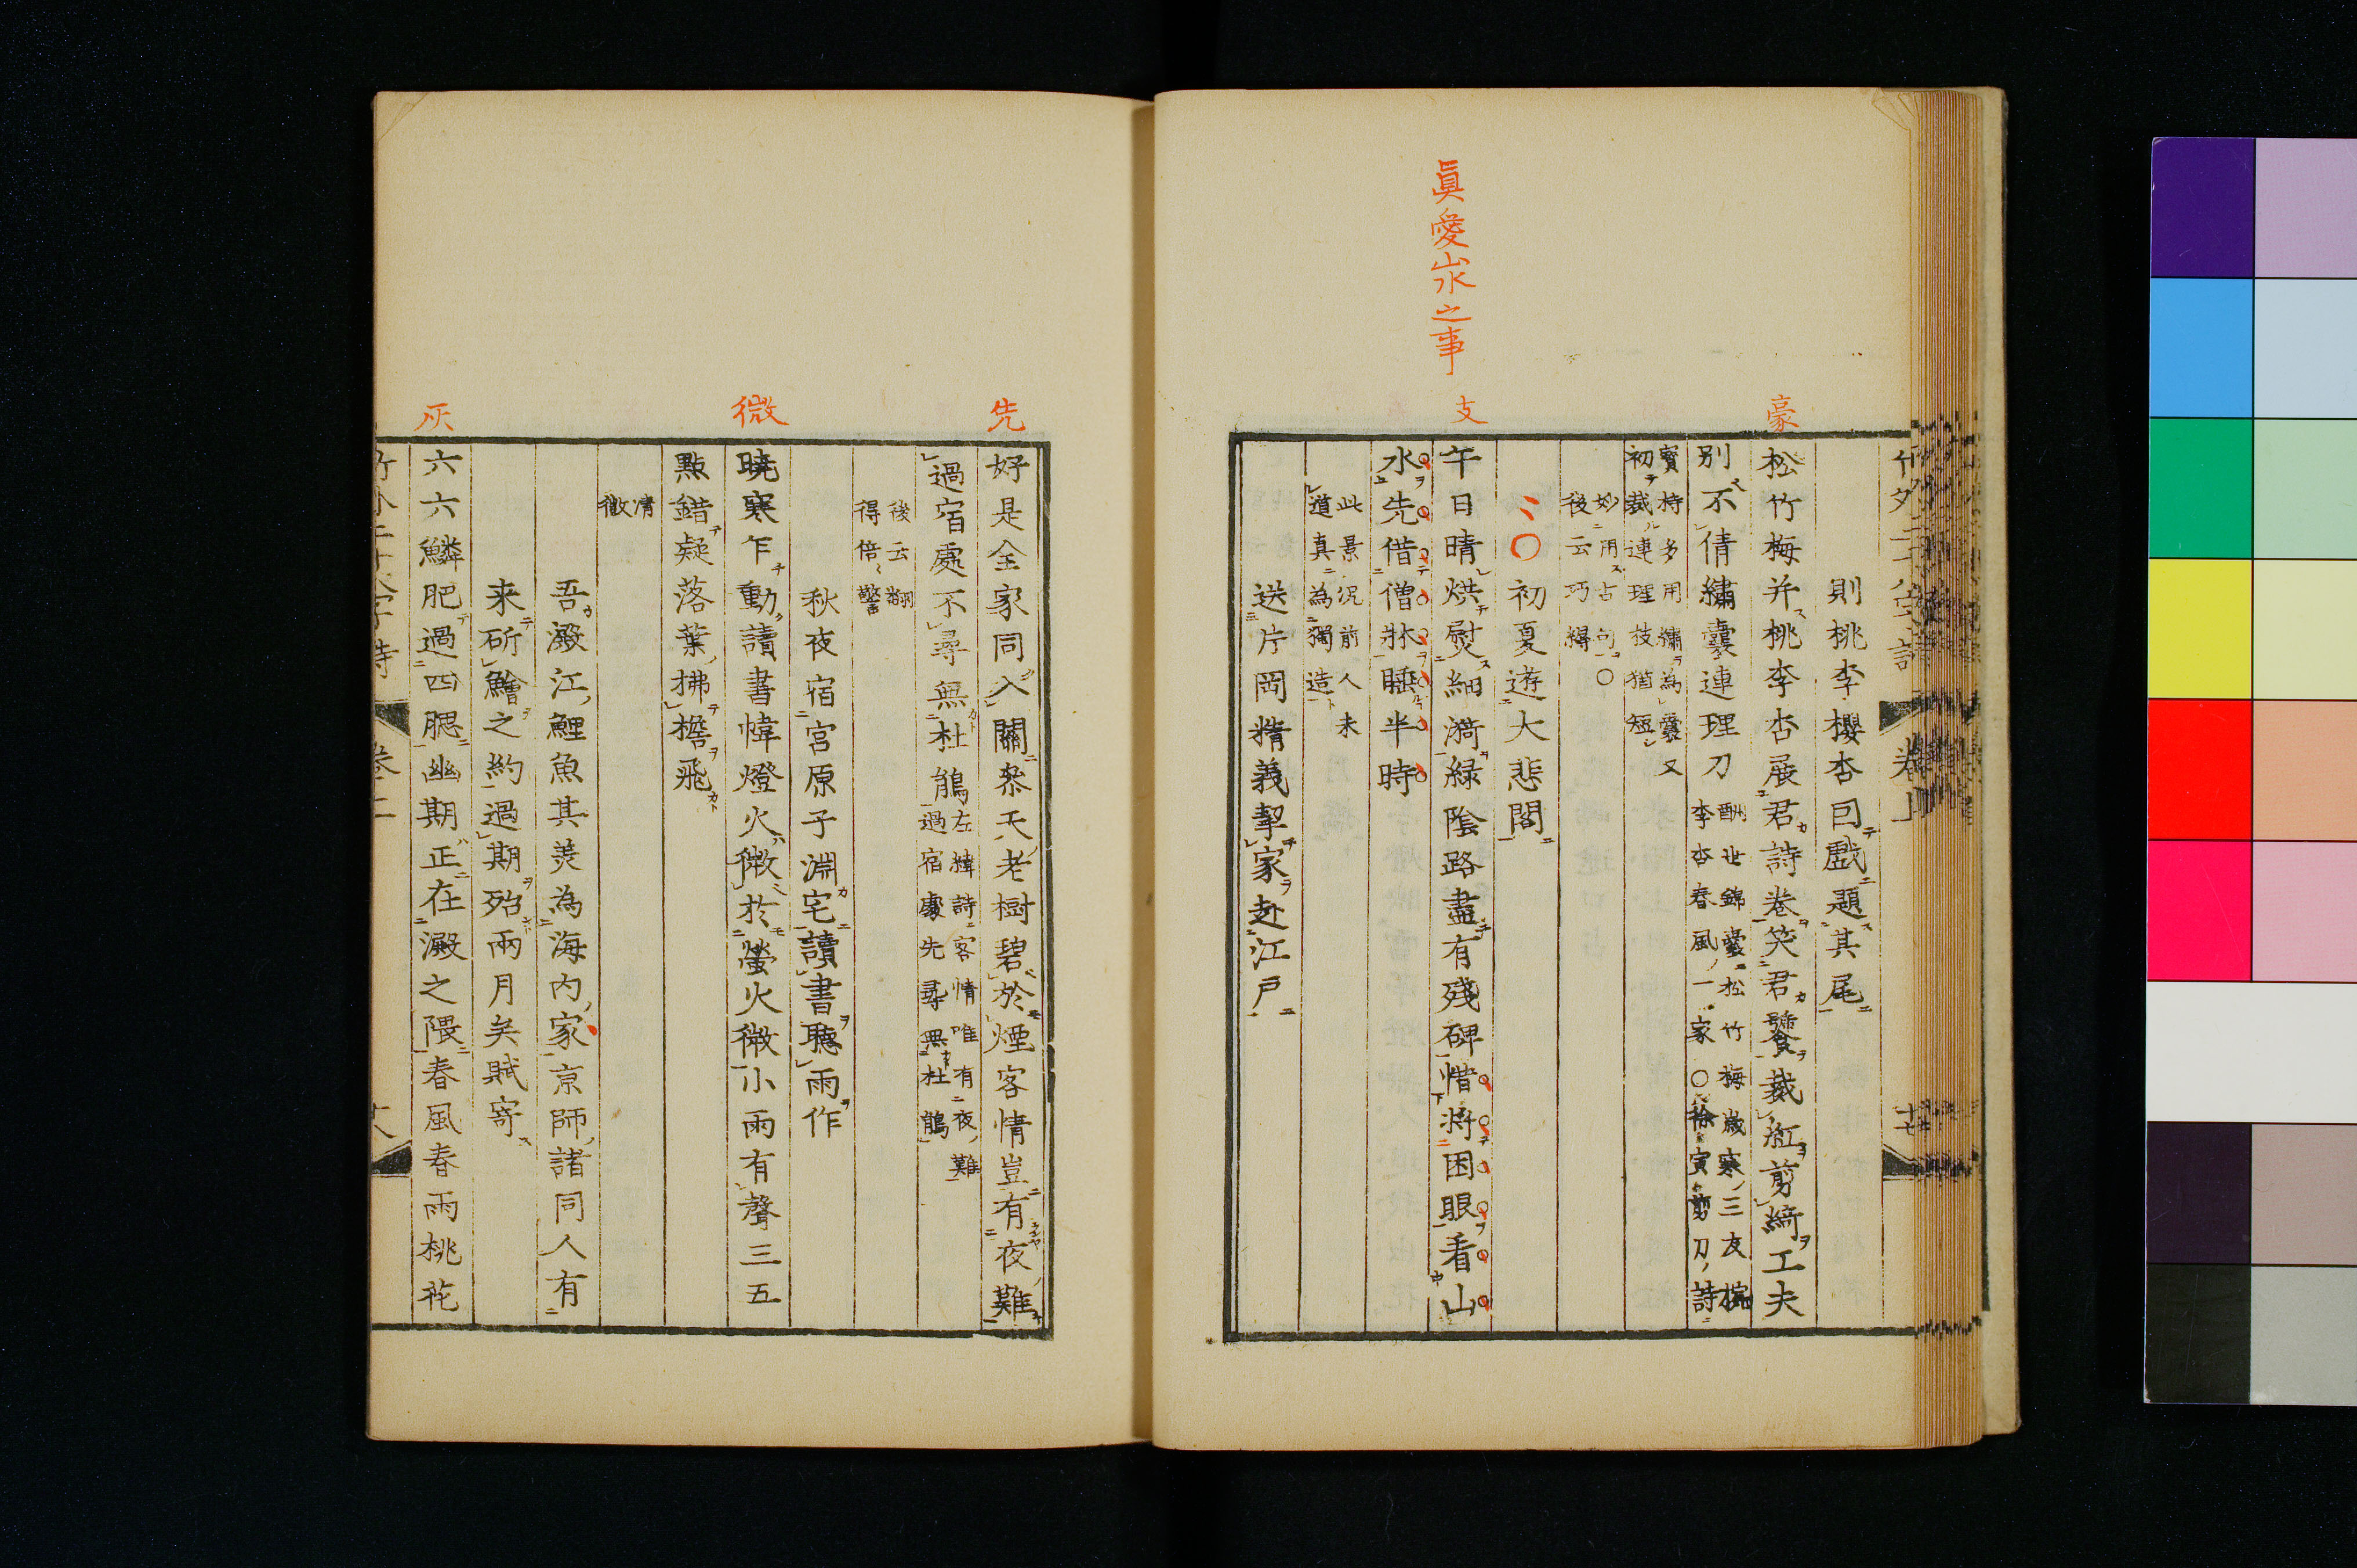 眞愛山水之事
豪
支
則桃李櫻杏回戲題其尾
松竹梅并桃李杏展君詩卷笑君饕裁紅剪綺工夫
別不倩繡囊連理刀
酬世錦囊松竹梅歲寒三友
李杏春風一家○徐寅剪刀詩
寳持多用繡為囊又
初裁連理枝猶短
妙用古句○
後云巧得
〻○初夏遊大悲閣
午日晴烘熨細漪綠陰路盡有殘碑惜將困眼看山
水先借僧牀睡半時
此景況前人未
道真為獨造
送片岡精義挈家赴江戶
先
微
灰
好是全家同入關參天老樹碧於煙客情豈有夜難
過宿處不尋無杜鵑
左緯詩客情唯有夜難
過宿處先尋無杜鵑
後云翻
得倍〻警
秋夜宿宮原子淵宅讀書聽雨作
曉寒乍動讀書幃燈火微於螢火微小雨有聲三五
點錯疑落葉拂檐飛
清
微
吾澱江鯉魚其美為海内家京師諸同人有
来斫鱠之約過期殆兩月矣賦寄
六六鱗肥過四腮幽期正在澱之隈春風春雨桃花